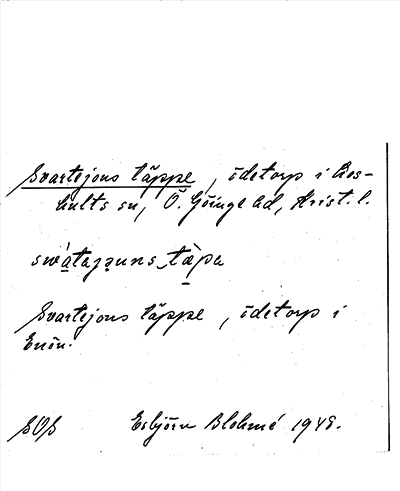 Svartejons täppe, ödetorp i Los-
hults sn, Ö. Göinge hd, Krist. l.
Svartejons täppe, ödetorp i
SOS Esbjörn Blohmé 1948.